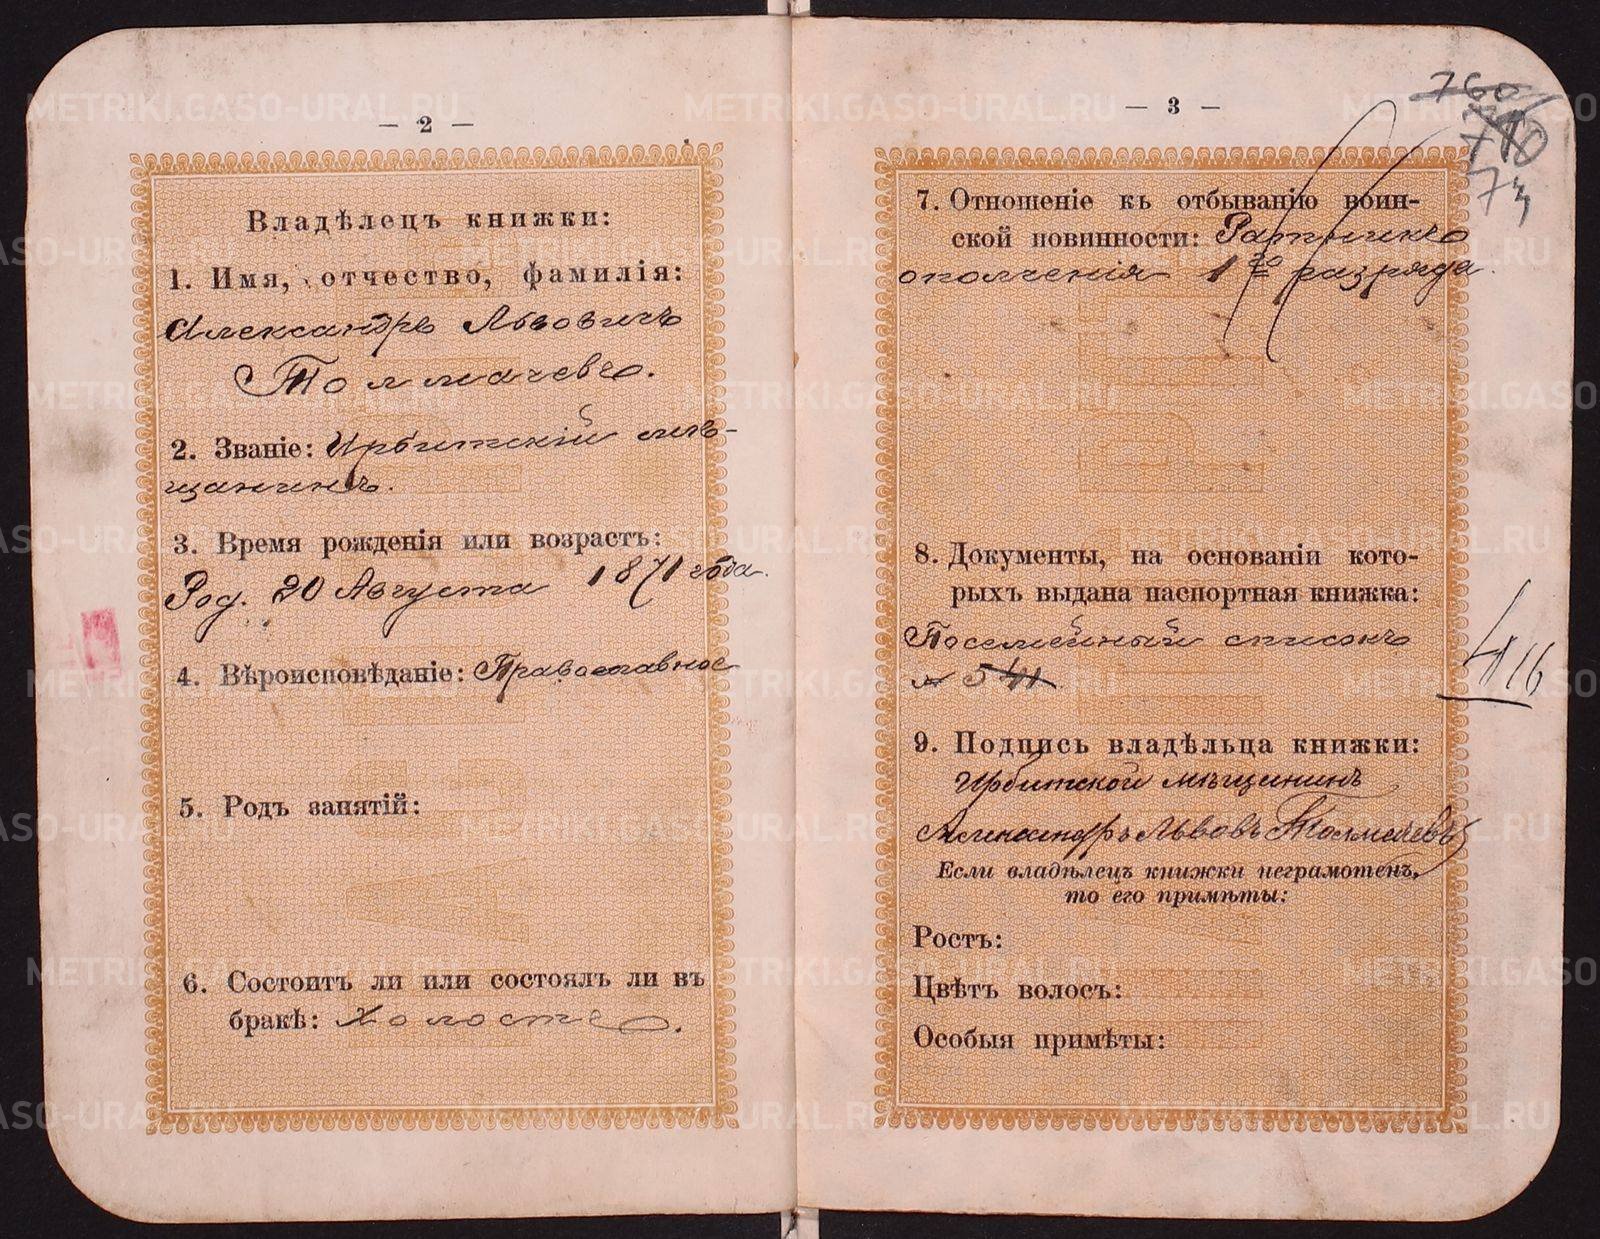 — 2 —
Владѣлецъ книжки:
1. Имя, отчество, фамилія:
Александръ Львовичъ
Толмачевъ.
2. Званіе: Ирбитскій мѣ-
щанинъ.
3. Время рожденія или возрастъ:
Род. 20 Августа 1871 года.
4. Вѣроисповѣданіе: Православное
5. Родъ занятій:
6. Состоитъ ли или состоялъ ли въ
бракѣ: Холостъ.
— 3 —
760
710
73
7. Отношеніе къ отбыванію воин-
ской повинности: Ратникъ
ополченія 1го разряда.
8. Документы, на основаніи кото-
рыхъ выдана паспортная книжка:
Посемейный списокъ
№ 541
416
9. Подпись владѣльца книжки:
Ирбитской мѣщининъ
Александръ Львовъ Толмачевъ
Если владѣлецъ книжки неграмотенъ,
то его примѣты:
Ростъ:
Цвѣтъ волосъ:
Особыя примѣты:
METRIKI.GASO-URAL.RU